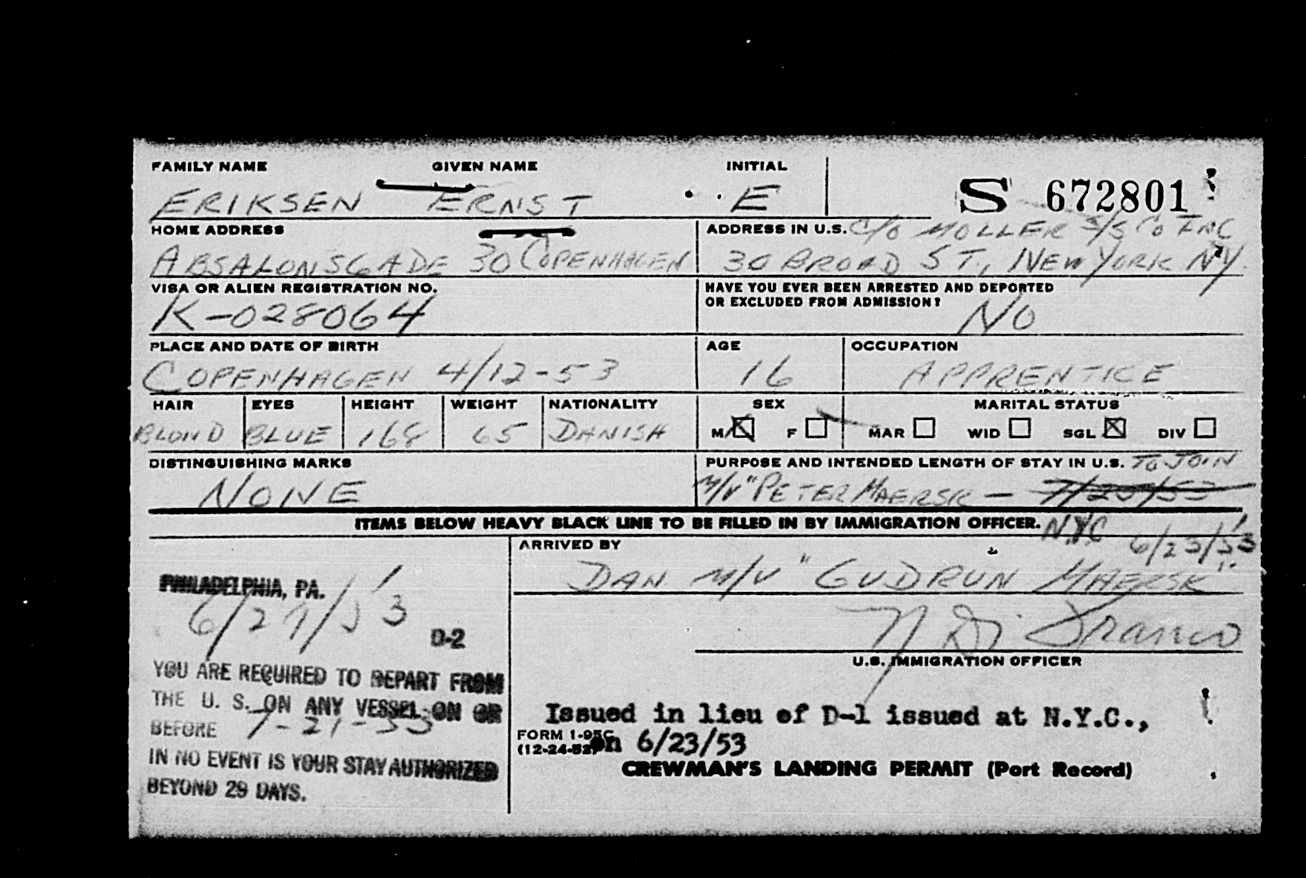 FAMILY NAME GIVEN NAME INITIAL
ERIKSEN ERNST E S 672801
HOME ADDRESS ADDRESS IN U.S. C/O MOLLER S/S CO INC
ABSALONSGADE 30 COPENHAGEN 30 BROAD ST., NEW YORK NY
VISA OR ALIEN REGISTRATION NO. HAVE YOU EVER BEEN ARRESTED AND DEPORTED
OR EXCLUDED FROM ADMISSION?
K-028064 NO
PLACE AND DATE OF BIRTH AGE OCCUPATION
COPENHAGEN 4/12-53 16 APPRENTICE
HAIR EYES HEIGHT WEIGHT NATIONALITY SEX MARITAL STATUS
BLOND BLUE 168 65 DANISH M F MAR WID SGL DIV
DISTINGUISHING MARKS PURPOSE AND INTENDED LENGTH OF STAY IN U.S. TO JOIN
NONE M/V "PETER MAERSK —
ITEMS BELOW HEAVY BLACK LINE TO BE FILLED IN BY IMMIGRATION OFFICER. N.Y.C 6/23/53
ARRIVED BY
DAN M/V "GUDRUN MAERSK
PHILADELPHIA, PA.
D-2
N Di Franco
U.S. IMMIGRATION OFFICER
YOU ARE REQUIRED TO DEPART FROM
THE U. S. ON ANY VESSEL ON OR
BEFORE 7-21-53
IN NO EVENT IS YOUR STAY AUTHORIZED
BEYOND 29 DAYS.
Issued in lieu of D-1 issued at N.Y.C.,
on 6/23/53
FORM I-95C
(12-24-52)
CREWMAN'S LANDING PERMIT (Port Record)